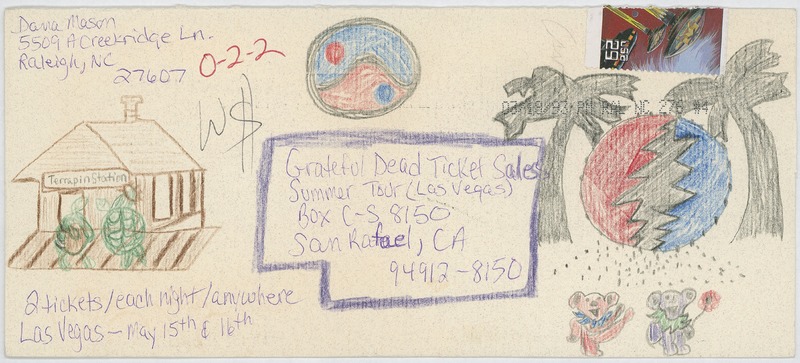 Dana Mason
5509 A Creekridge Ln.
Raleigh, NC
27607
0-2-2
W$
52
USA
03/18/93 PM RAL NC 276 #4
Terrapin Station
Grateful Dead Ticket Sales
Summer Tour (Las Vegas)
Box C-S 8150
San Rafael, CA
94912-8150
2 tickets/each night/anywhere
Las Vegas - May 15th & 16th